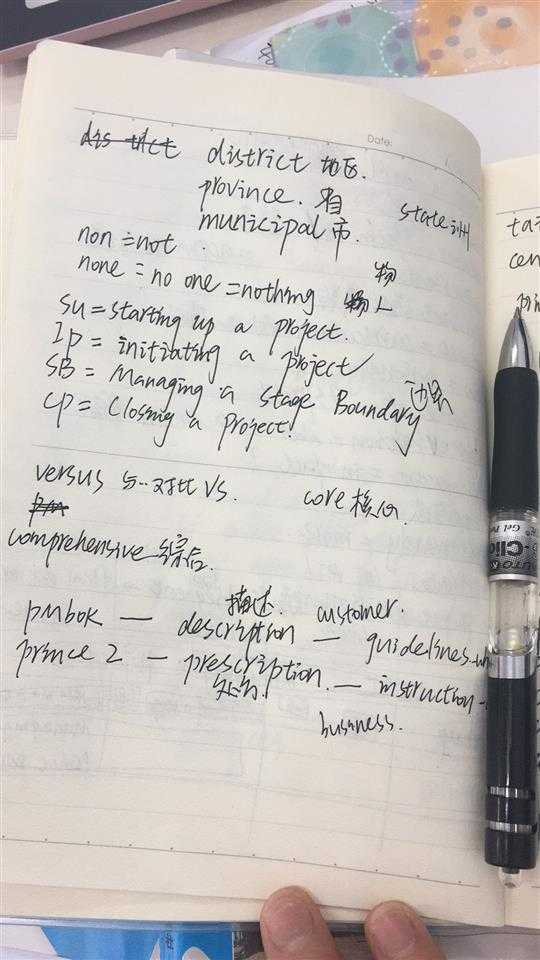 Date:
district 地区.
province. 省
municipal 市. state 州
non = not
物
none = no one = nothing 物 人
SU = starting up a project.
Ip = initiating a project
SB = Managing a stage Boundary 边界
cp = Closing a Project.
versus 与..对比 Vs. core 核心.
comprehensive 综合.
描述. customer.
pmbok — description — guidelines
prince 2 — prescription. — instruction -
处方.
business.
tai
cen